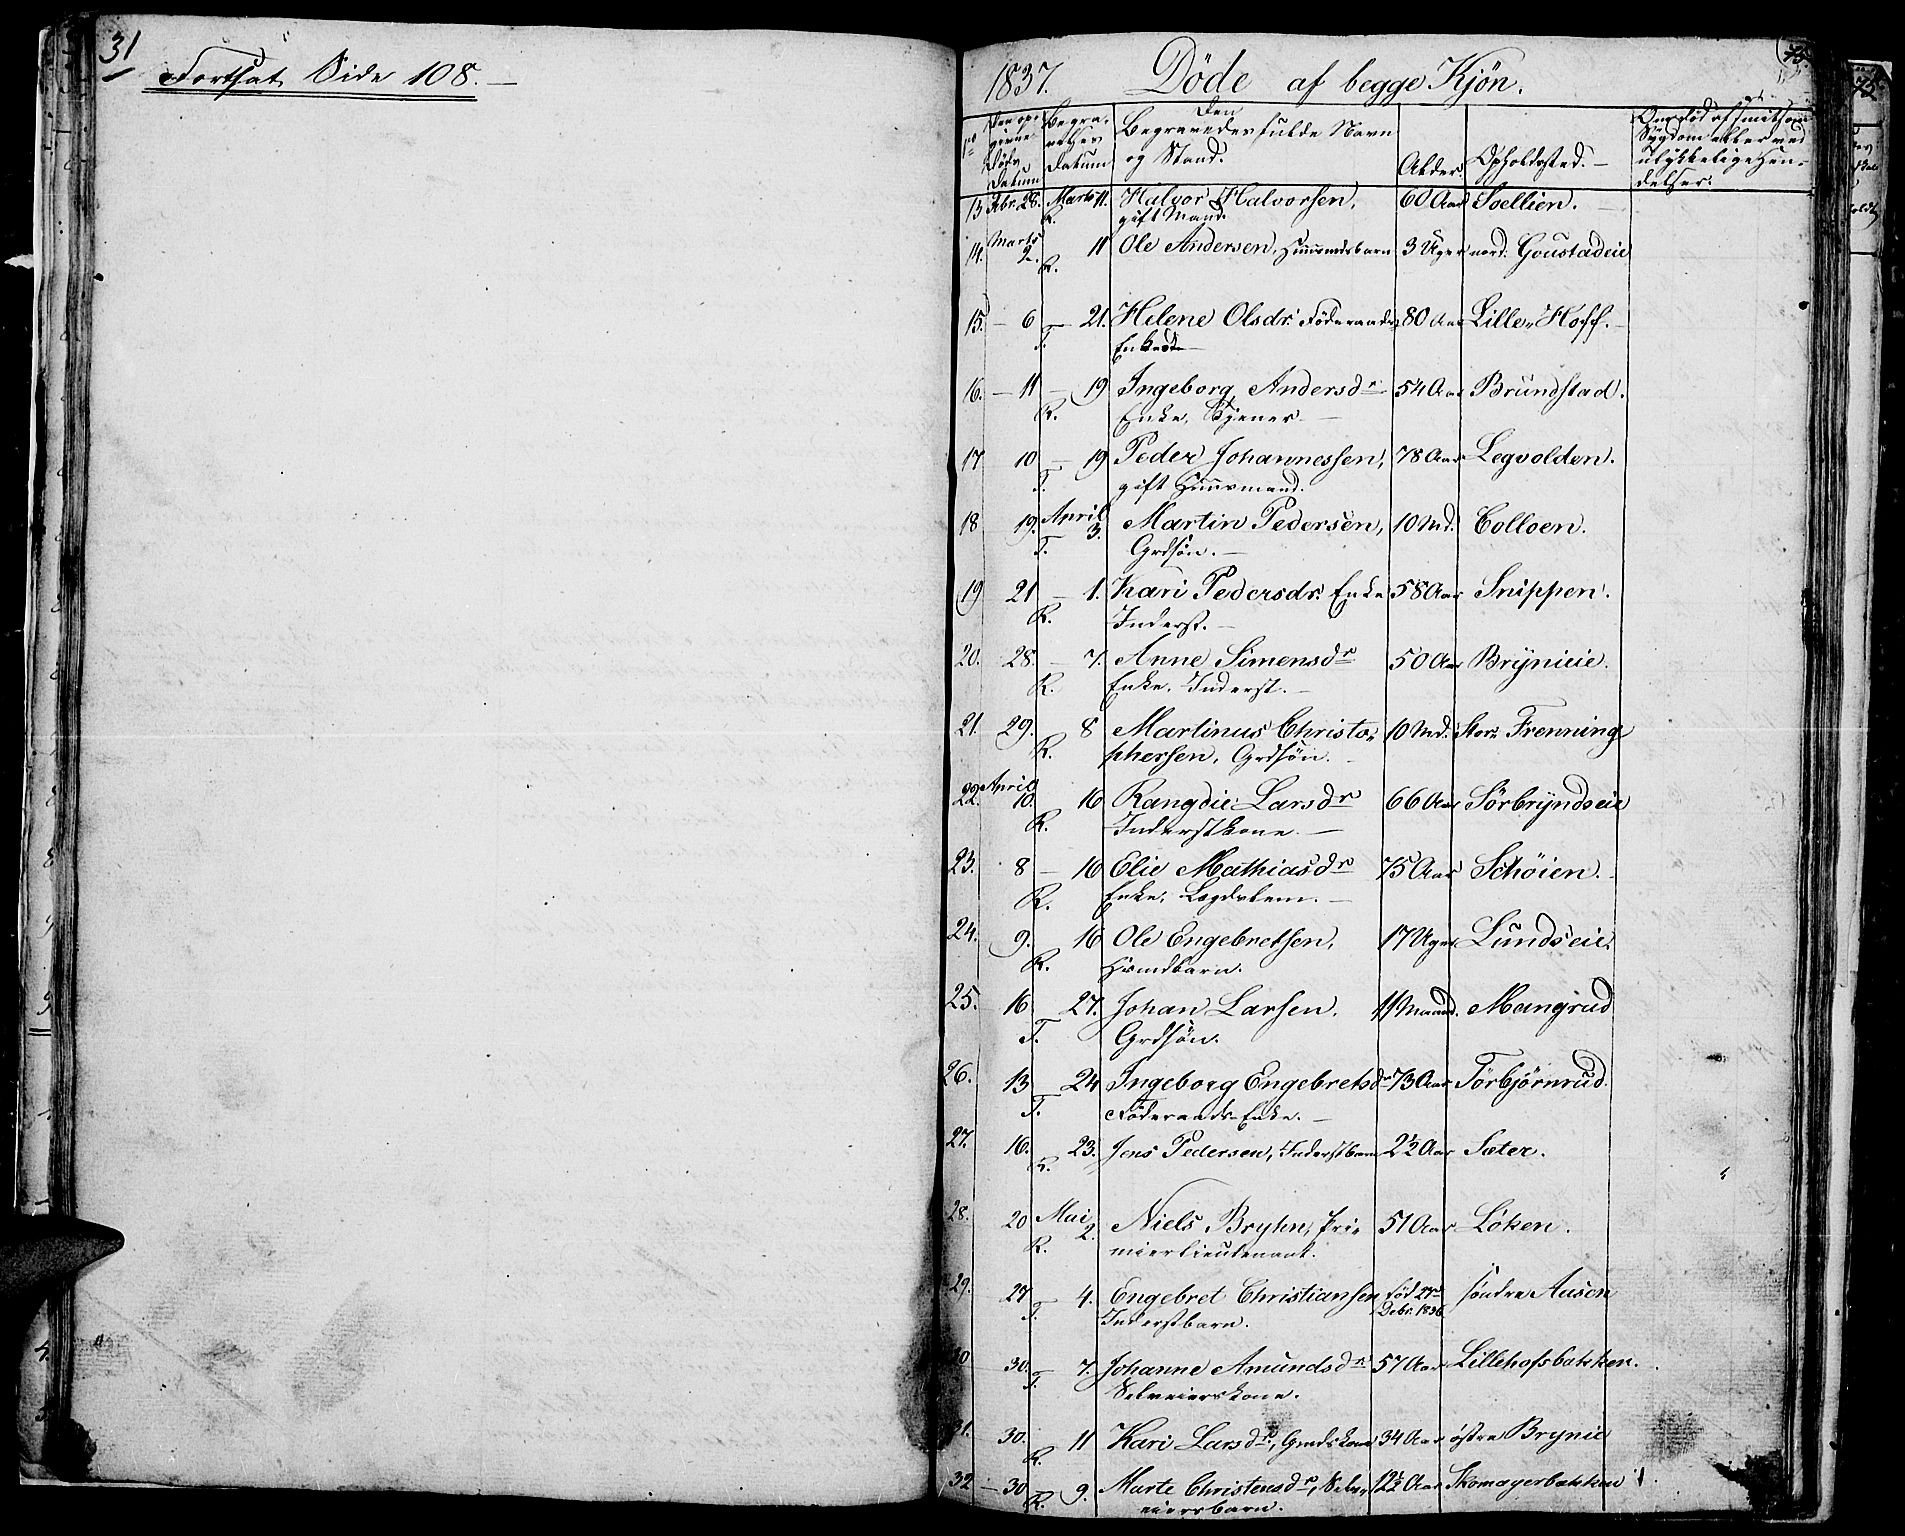 31
Fortsat Side 108.
75.
1837. Döde af begge Kjön.
Begra-
Den
Begravedes fulde Navn
og Stand.
Alder.
Opholdssted.
Sygdom eller ved
ulykkelige Hæn-
delser.
Døds
Datum
Datum
13 Febr. 28. Marts 11. Halvor Halvorsen, 60 Aar Soellien.
R. gift Mand.
14. Marts 2. 11 Ole Andersen, Huusmdsbarn 3 Uger nord. Goustadeie
R.
15. – 6 – 21. Helene Olsdr. Föderaads 80 Aar Lille Hoff.
T. Enke
16. – 11 – 19 Ingeborg Andersdr 54 Aar Brundstad.
R. Enke, Tjener
17 10 – 19 Peder Johannessen, 78 Aar Legvolden.
T. gift Huusmand.
18 19. April 3. Martin Pedersen, 10 Md. Colloen.
T. Grdsön.
19 21 – 1. Kari Pedersdr. Enke 58 Aar Snippen.
R. Inderst.
20. 28. – 7. Anne Simensdr 50 Aar Brynieie.
R. Enke, Inderst.
21. 29. 8 Martinus Christo- 10 Md. Stor Frenning
R. phersen, Grdsön.
22. April 10. 16 Rangdie Larsdr 66 Aar Sörbryndseie
R. Inderstkone.
23. 8 – 16 Elie Mathiasdr 75 Aar Schöien.
R. Enke, Lægdslem.
24. 9. 16 Ole Engebretsen, 17 Uger Lundseie.
R. Husmdbarn.
25. 16 27. Johan Larsen. 11 Maaned. Mangrud
T. Grdsön.
26. 13 24 Ingeborg Engebretsdr 73 Aar Torbjörnrud.
T. Föderaads Enke.
27. 16. 23. Jens Pedersen, Inderstbarn 2½ Aar Sæter.
R.
28. 20 Mai 2. Niels Bryhn, Pri- 51 Aar Löken.
R. mierlieutenant.
29. 27 – 4. Engebret Christiansen född 27de söndre Aasen
T. Inderstbarn. Debr. 1836
30 30. – 7. Johanne Amundsdr 57 Aar Lillehofsbakken.
T. Selveierskone.
31. 30. 11 Kari Larsdr, Grdskone 34 Aar östre Brynie
R.
32 – 30 9. Marte Christensdr, Selv- 12½ Aar Skomagerbakken
R. eiersbarn.